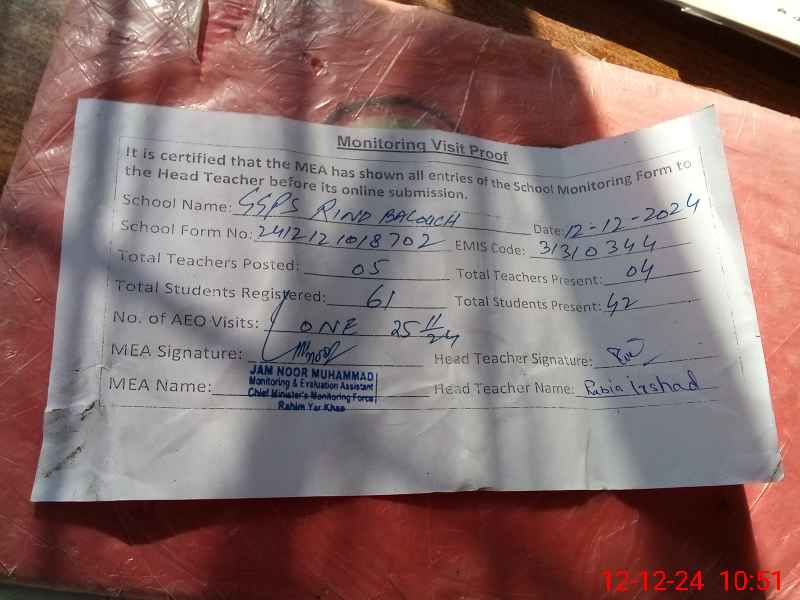 Monitoring Visit Proof
It is certified that the MEA has shown all entries of the School Monitoring Form to
the Head Teacher before its online submission.
School Name: GGPS RIND BALOUCH Date: 12-12-2024
School Form No: 2412121018702 EMIS Code: 31310344
Total Teachers Posted: 05 Total Teachers Present: 04
Total Students Registered: 61 Total Students Present: 42
No. of AEO Visits: ONE 25 11/24
MEA Signature: Head Teacher Signature:
JAM NOOR MUHAMMAD
Monitoring & Evaluation Assistant
Chief Minister's Monitoring Force
Rahim Yar Khan
MEA Name: Head Teacher Name: Rubia Irshad
12-12-24 10:51